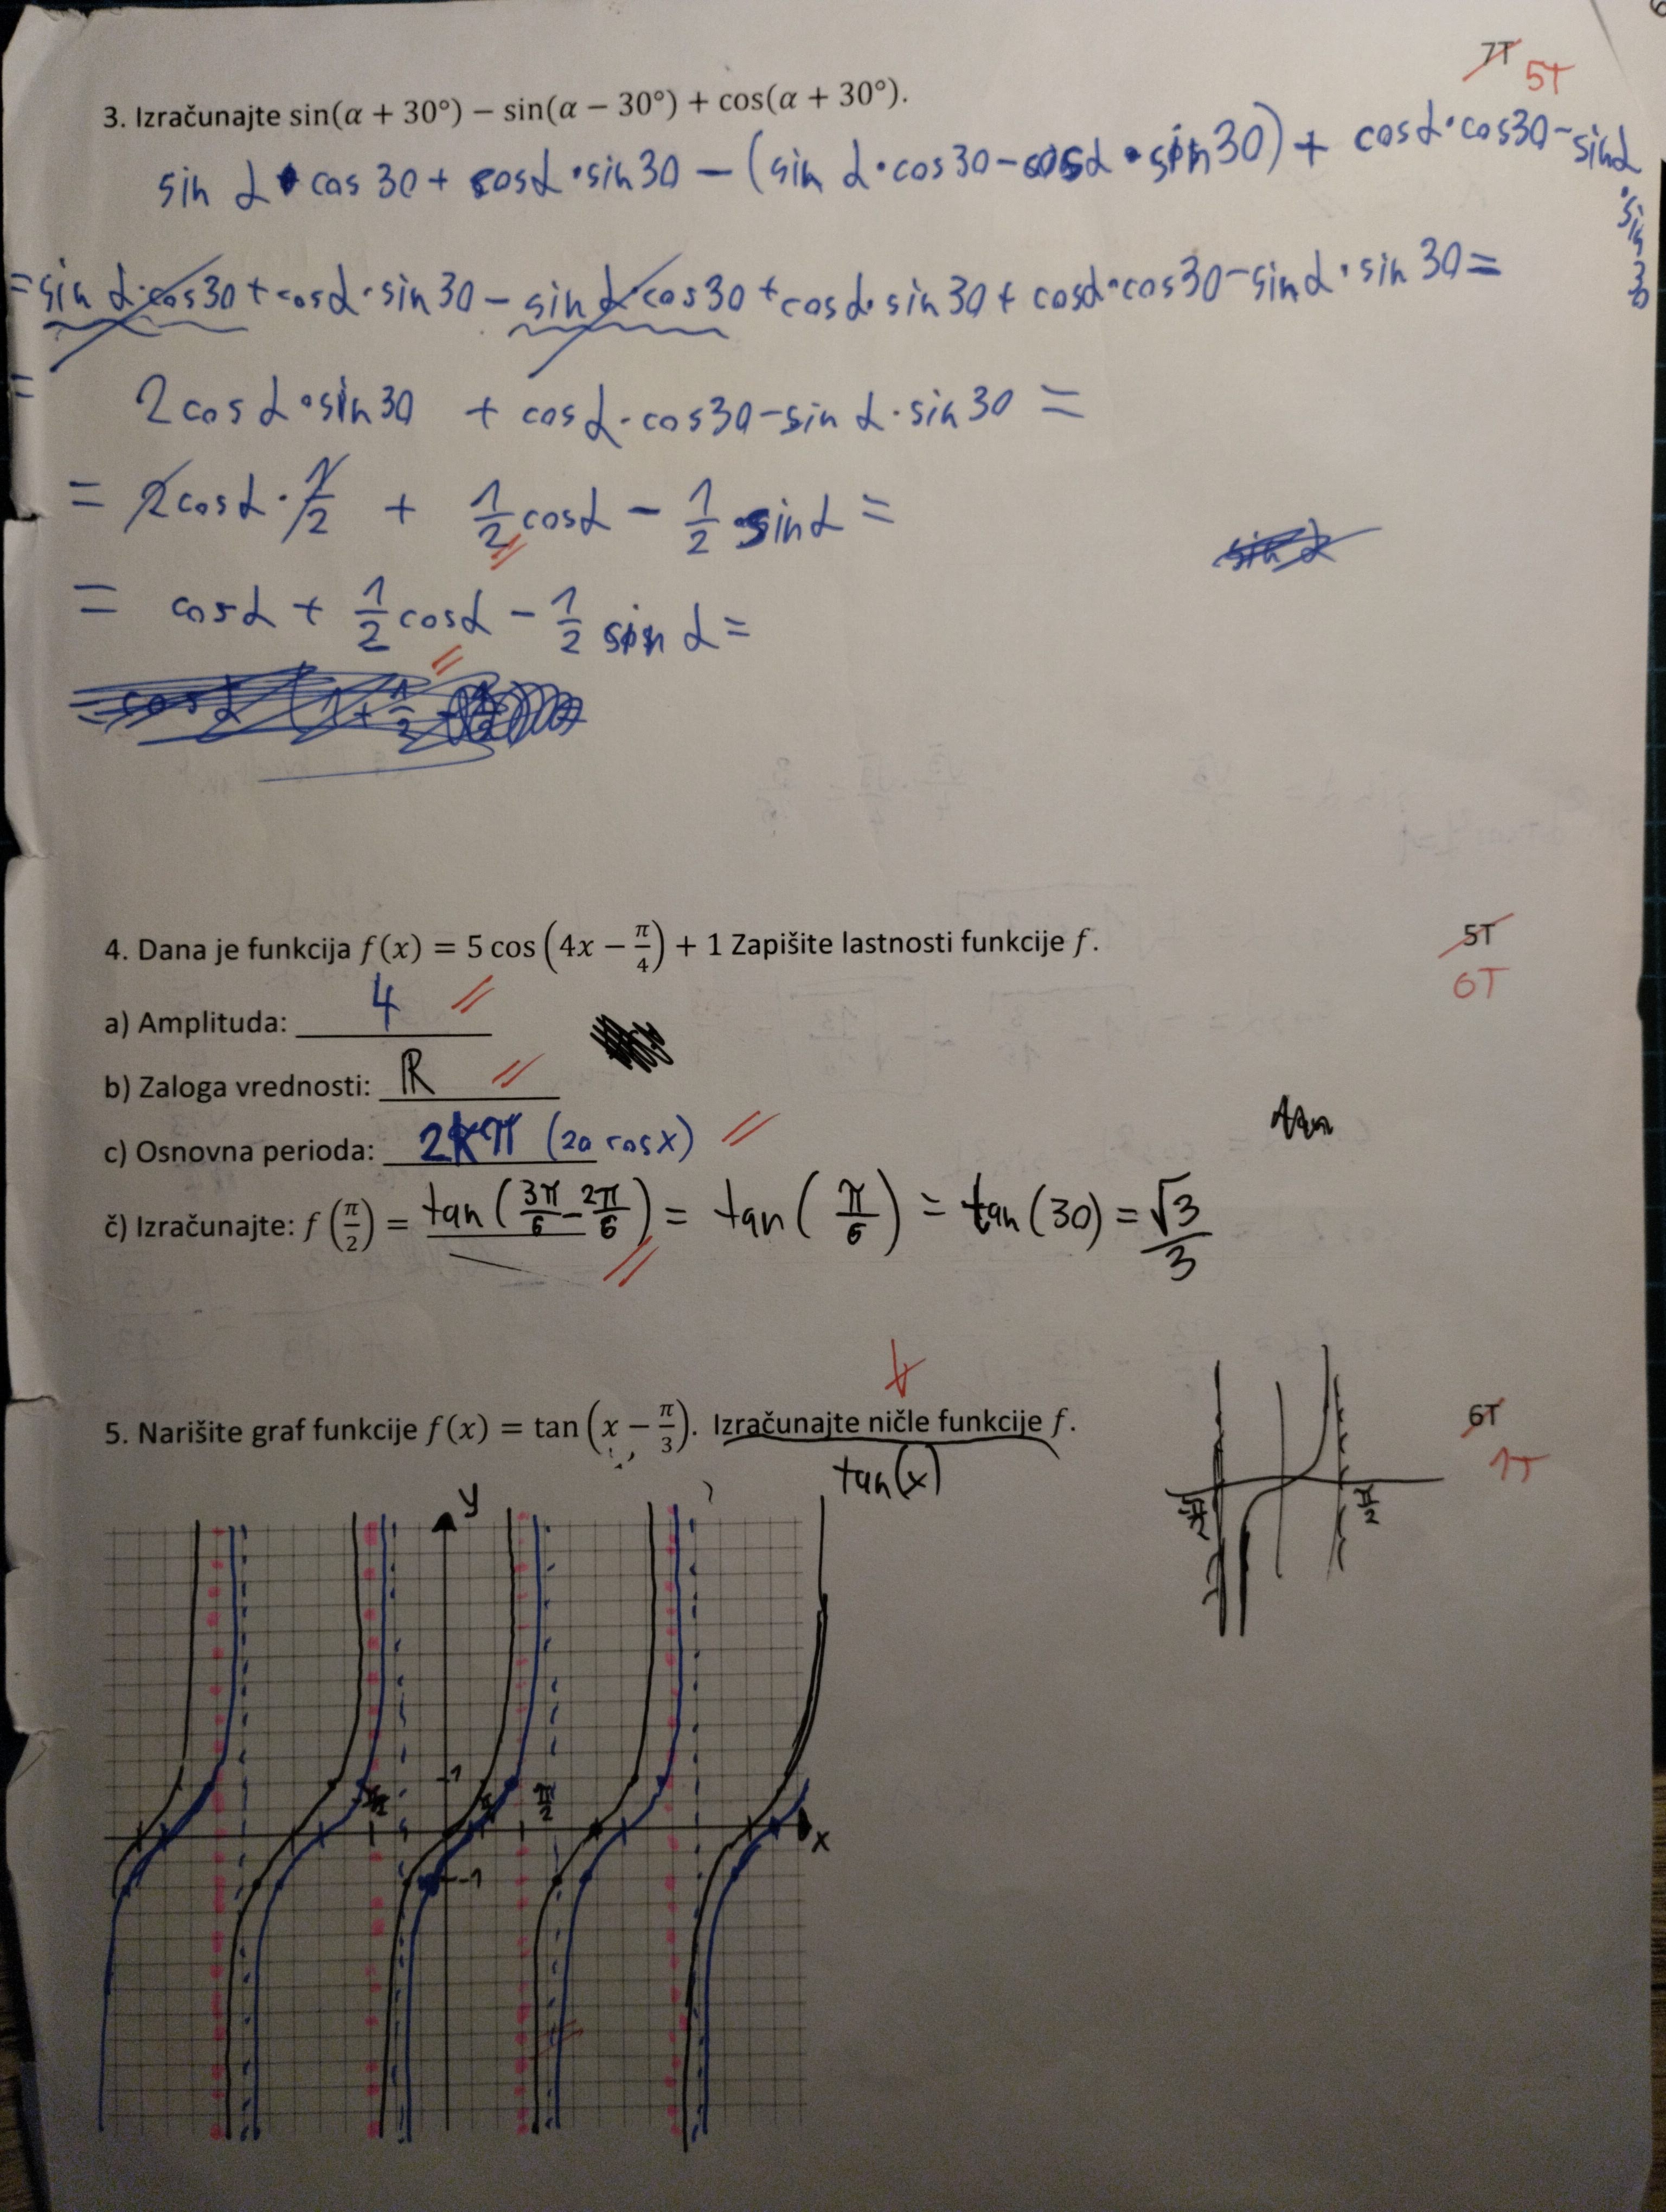 7T 5T
3. Izračunajte sin(α + 30°) − sin(α − 30°) + cos(α + 30°).
sin α · cos 30 + cosα · sin 30 − (sin α · cos30 − cosα · sin 30) + cosα · cos30 − sinα · sin 30
= sin α · cos 30 + cosα · sin 30 − sin α · cos 30 + cosα · sin 30 + cosα · cos 30 − sin α · sin 30 =
= 2 cos α · sin 30 + cos α · cos 30 − sin α · sin 30 =
= 2 cos α · 1/2 + 1/2 cosα − 1/2 sin α =
sin α
= cosα + 1/2 cosα − 1/2 sin α =
4. Dana je funkcija f(x) = 5 cos (4x − π/4) + 1 Zapišite lastnosti funkcije f.
5T
6T
a) Amplituda: 4
b) Zaloga vrednosti: ℝ
c) Osnovna perioda: 2kπ (za cosx)
č) Izračunajte: f(π/2) = tan(3π/6 − 2π/6) = tan(π/6) = tan(30) = √3/3
5. Narišite graf funkcije f(x) = tan(x − π/3). Izračunajte ničle funkcije f.
6T
1T
tan(x)
-π/2
π/2
y
1
π/2
x
-1